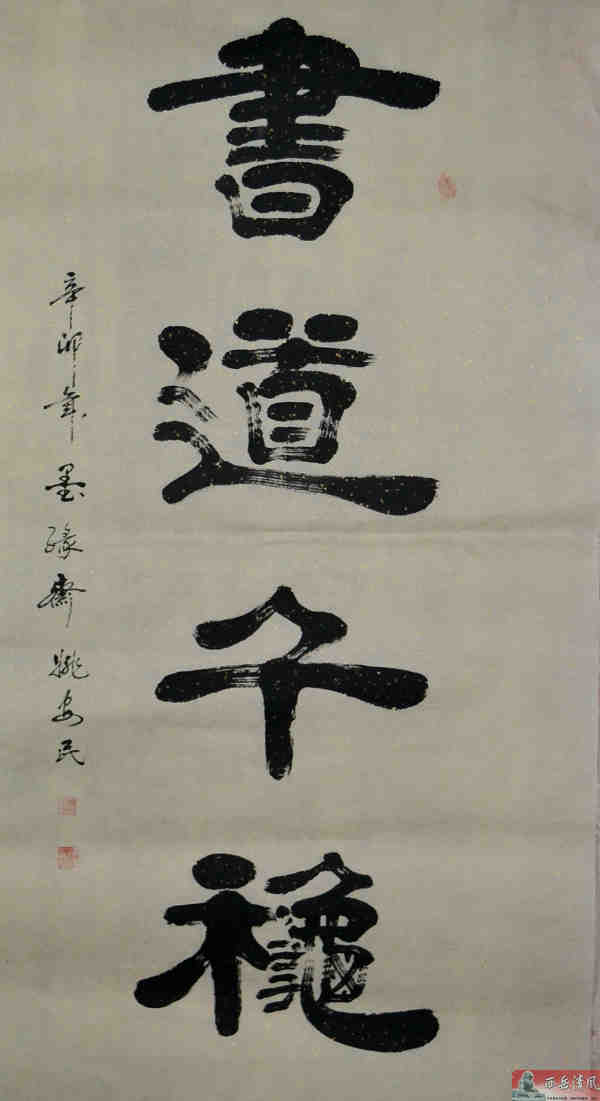 書道千穐
辛卯年 墨緣齋 姚安民
西岳清风